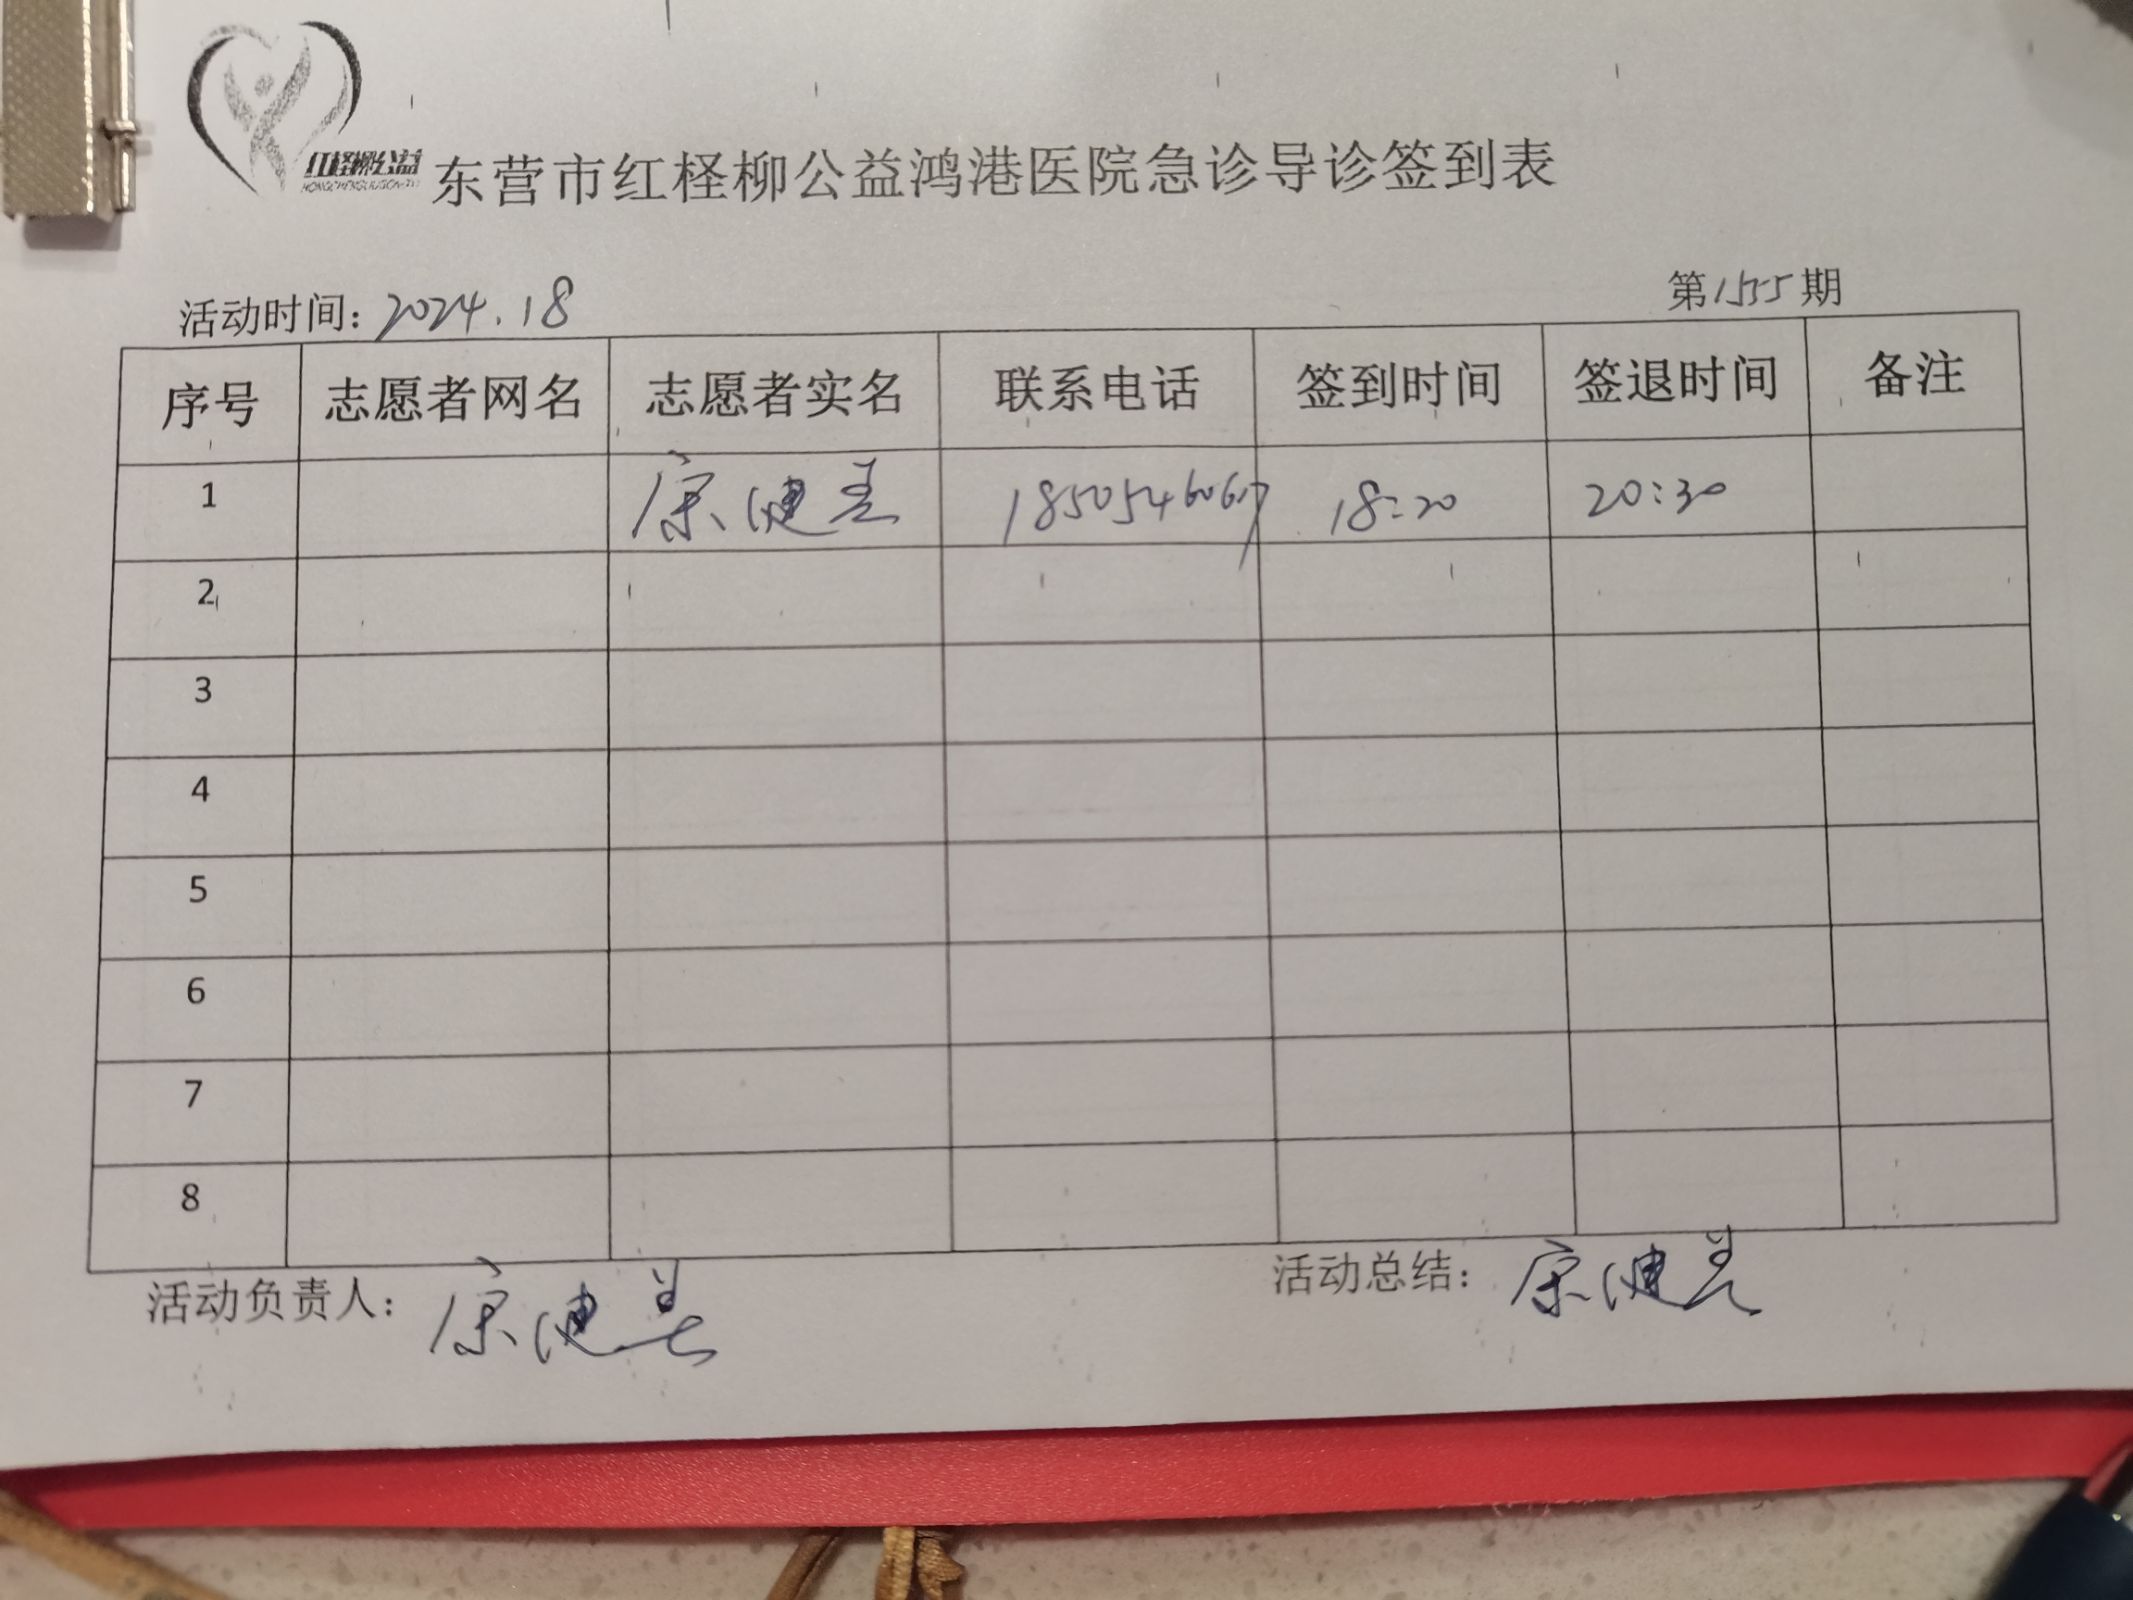 红柽柳公益
东营市红柽柳公益鸿港医院急诊导诊签到表
活动时间：2024.18
第1555期
序号 志愿者网名 志愿者实名 联系电话 签到时间 签退时间 备注
1 康健 18:20 20:30
2
3
4
5
6
7
8
活动负责人：康健
活动总结：康健